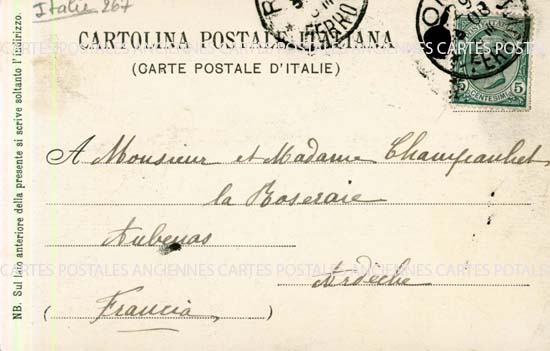 Italie 267
CARTOLINA POSTALE ITALIANA
(CARTE POSTALE D'ITALIE)
FERRO
FERR
CENTESIMI
5 5
NB. Sul lato anteriore della presente si scrive soltanto l'indirizzo.
A Monsieur et Madame Champanhet
la Roseraie
Aubenas
CARTES POSTALES ANCIENNES CARTES POSTALES ANCIENNES CARTES POSTALES
Ardèche
(Francia)